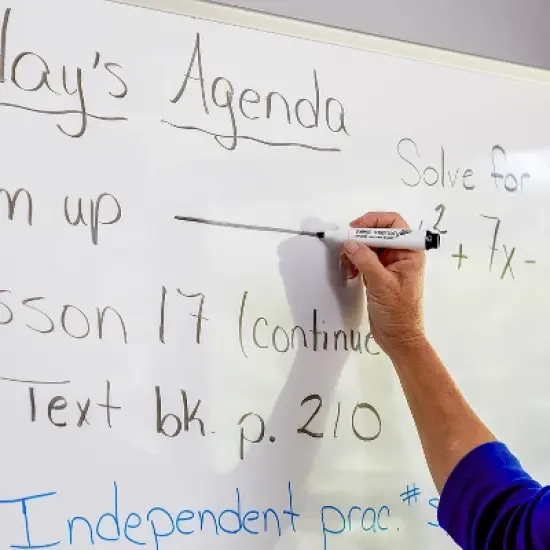 lay's Agenda
Solve for
m up
2 + 7x -
sson 17 (continue
Text bk. p. 210
Independent prac. #